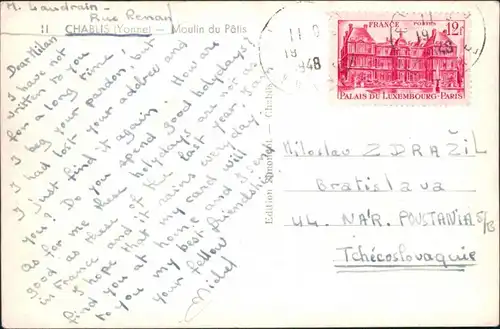 M. Laudrain -
Rue Renan
11 CHABLIS (Yonne) — Moulin du Pâtis
Dear Milan
I have not
written to you
for a long time!
I beg your pardon; but
I had lost your address and
I just find it again! How are
you? Do you spend good holydays;
as for me these holydays are not
good as these of the last year. Rain
in France and it rains every day.
I hope that my card will
find you at home and I send
to you my best friendship.
Your fellow
Michel
Edition
11 0
18
1948
1948
FRANCE POSTES
12F
PALAIS DU LUXEMBOURG-PARIS
Miloslav ZDRAŽIL
Bratislava
44. NÁR. POVSTANIA 5/B
Tchécoslovaquie